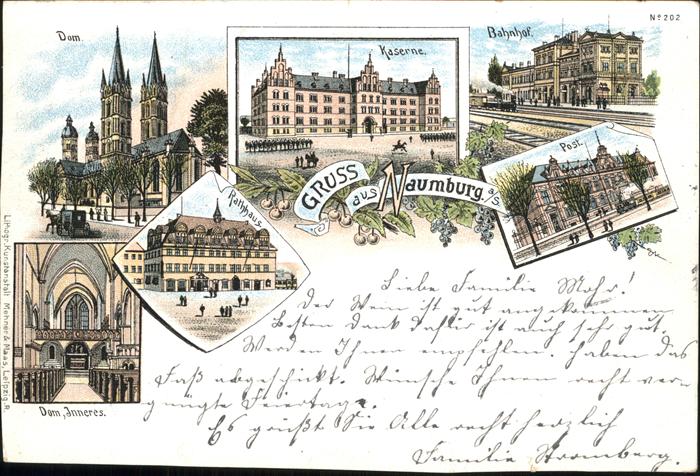 No 202
Dom.
Kaserne.
Bahnhof.
Post.
GRUSS aus Naumburg. a/S.
Rathhaus.
Dom, Inneres.
Lithogr. Kunstanstalt Mehner & Maas, Leipzig. R.
Liebe Familie Mohr!
Der Wein ist gut angekommen
Besten Dank dafür ist auch sehr gut.
Werden Ihnen empfehlen haben das
Faß abgeschickt. Wünsche Ihnen recht ver
gnügte Feiertage.
Es grüßt Sie Alle recht herzlich
Familie Stromberg.